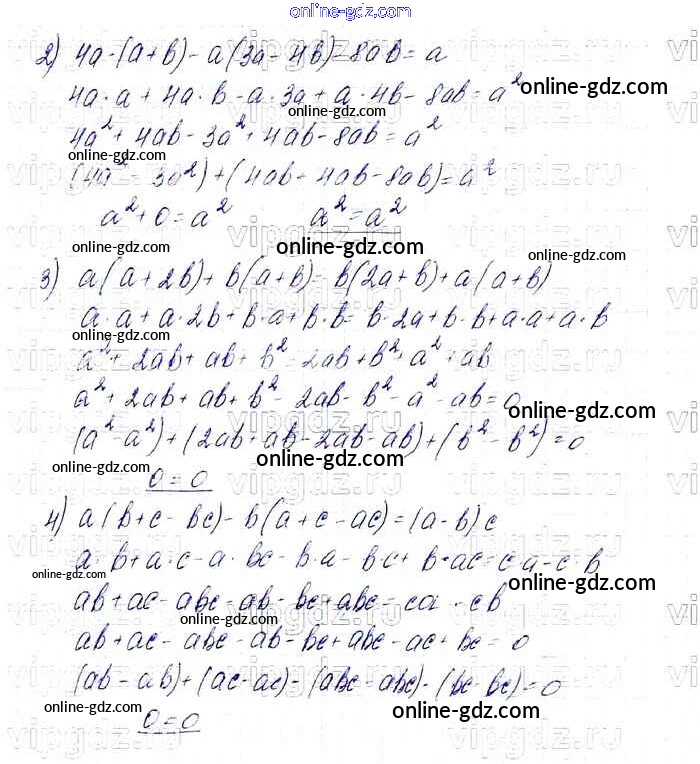 online-gdz.com
2) 4a·(a+b)-a(3a-4b)-8ab=a
4a·a+4a·b-a·3a+a·4b-8ab=a²
online-gdz.com
4a²+4ab-3a²+4ab-8ab=a²
online-gdz.com
(4a²-3a²)+(4ab-4ab-8ab)=a²
a²+0=a² a²=a²
online-gdz.com online-gdz.com online-gdz.com
3) a(a+2b)+b(a+b)=b(2a+b)+a(a+b)
a·a+a·2b+b·a+b·b=b·2a+b·b+a·a+a·b
online-gdz.com
a²+2ab+ab+b²=2ab+b²+a²+ab
a²+2ab+ab+b²-2ab-b²-a²-ab=0
online-gdz.com
(a²-a²)+(2ab+ab-2ab-ab)+(b²-b²)=0
online-gdz.com online-gdz.com
0=0
4) a(b+c-bc)-b(a+c-ac)=(a-b)c
a·b+a·c-a·bc-b·a-bc+b·ac=c·a-c·b
online-gdz.com online-gdz.com
ab+ac-abc-ab-bc+abc=ca-cb
online-gdz.com
ab+ac-abc-ab-bc+abc-ac+bc=0
(ab-ab)+(ac-ac)-(abc-abc)-(bc-bc)=0
online-gdz.com online-gdz.com
0=0
vipgdz.ru